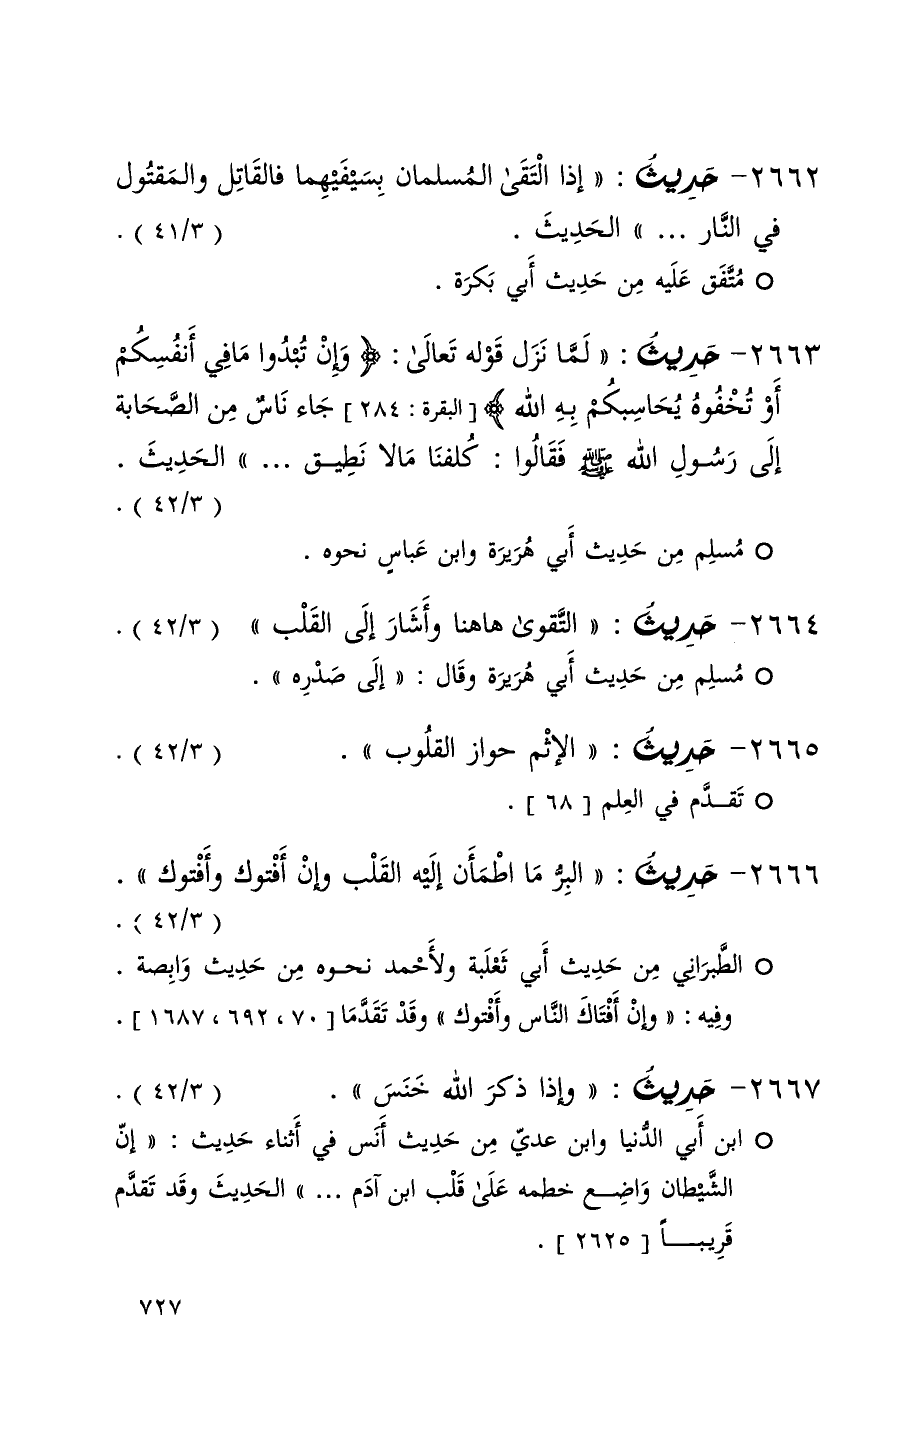 ٢٦٦٢- حَدِيثُ : « إذا الْتَقَىٰ المُسلمان بِسَيْفَيْهِما فالقَاتِل والمَقتُول
في النَّار ... » الحَدِيثَ . ( ٤١/٣ ) .
○ مُتَّفَق عَلَيه مِن حَدِيث أَبي بَكرَة .
٢٦٦٣- حَدِيثُ : « لَمَّا نَزَل قَوْله تَعالَىٰ : ﴿ وَإِنْ تُبْدُوا مَافِي أَنفُسِكُمْ
أَوْ تُخْفُوهُ يُحَاسِبكُمْ بِهِ الله ﴾ [ البقرة : ٢٨٤ ] جَاء نَاسٌ مِن الصَّحَابة
إلَى رَسُولِ الله ﷺ فَقَالُوا : كُلفنَا مَالا نَطِيق ... » الحَدِيثَ .
( ٤٢/٣ ) .
○ مُسلِم مِن حَدِيث أَبي هُرَيرَة وابن عَباسٍ نحوه .
٢٦٦٤- حَدِيثُ : « التَّقوىٰ هاهنا وأَشَارَ إلَى القَلْب » ( ٤٢/٣ ) .
○ مُسلِم مِن حَدِيث أَبي هُرَيرَة وقَال : « إلَى صَدْرِه » .
٢٦٦٥- حَدِيثُ : « الإثْم حواز القلُوب » . ( ٤٢/٣ ) .
○ تَقدَّم في العِلم [ ٦٨ ] .
٢٦٦٦- حَدِيثُ : « البِرُّ مَا اطْمَأَن إلَيْه القَلْب وإنْ أَفْتوك وأَفْتوك » .
( ٤٢/٣ ) .
○ الطَّبرَانِي مِن حَدِيث أَبي ثَعْلَبة ولأَحْمد نحوه مِن حَدِيث وَابِصة .
وفِيه : « وإنْ أَفْتَاكَ النَّاس وأَفْتوك » وقَدْ تَقَدَّمَا [ ٧٠ ، ٦٩٢ ، ١٦٨٧ ] .
٢٦٦٧- حَدِيثُ : « وإذا ذكرَ الله خَنَسَ » . ( ٤٢/٣ ) .
○ ابن أَبي الدُّنيا وابن عديّ مِن حَدِيث أَنَس في أَثناء حَدِيث : « إنّ
الشَّيْطان وَاضِع خطمه عَلَىٰ قَلْب ابن آدَم ... » الحَدِيثَ وقَد تَقدَّم
قَرِيباً [ ٢٦٢٥ ] .
٧٢٧